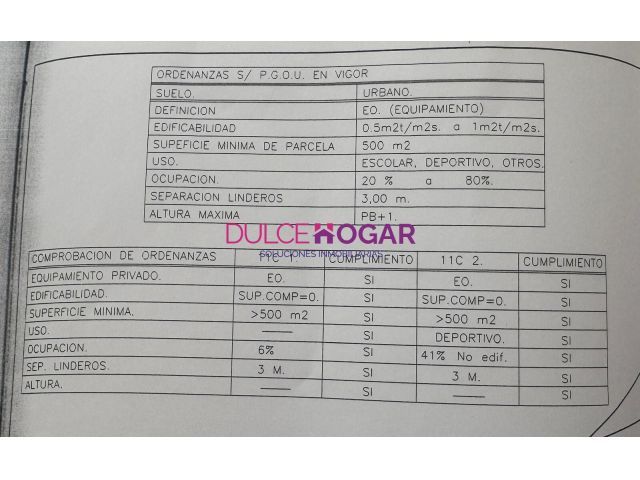 ORDENANZAS S/ P.G.O.U. EN VIGOR
SUELO. URBANO.
DEFINICION EO. (EQUIPAMIENTO)
EDIFICABILIDAD 0.5m2t/m2s. a 1m2t/m2s.
SUPEFICIE MINIMA DE PARCELA 500 m2
USO. ESCOLAR, DEPORTIVO, OTROS.
OCUPACION. 20 % a 80%.
SEPARACION LINDEROS 3,00 m.
ALTURA MAXIMA PB+1.
DULCE HOGAR
SOLUCIONES INMOBILIARIAS
COMPROBACION DE ORDENANZAS 11C 1. CUMPLIMIENTO 11C 2. CUMPLIMIENTO
EQUIPAMIENTO PRIVADO. EO. SI EO. SI
EDIFICABILIDAD. SUP.COMP=0. SI SUP.COMP=0. SI
SUPERFICIE MINIMA. >500 m2 SI >500 m2 SI
USO. —— SI DEPORTIVO. SI
OCUPACION. 6% SI 41% No edif. SI
SEP. LINDEROS. 3 M. SI 3 M. SI
ALTURA. —— SI —— SI